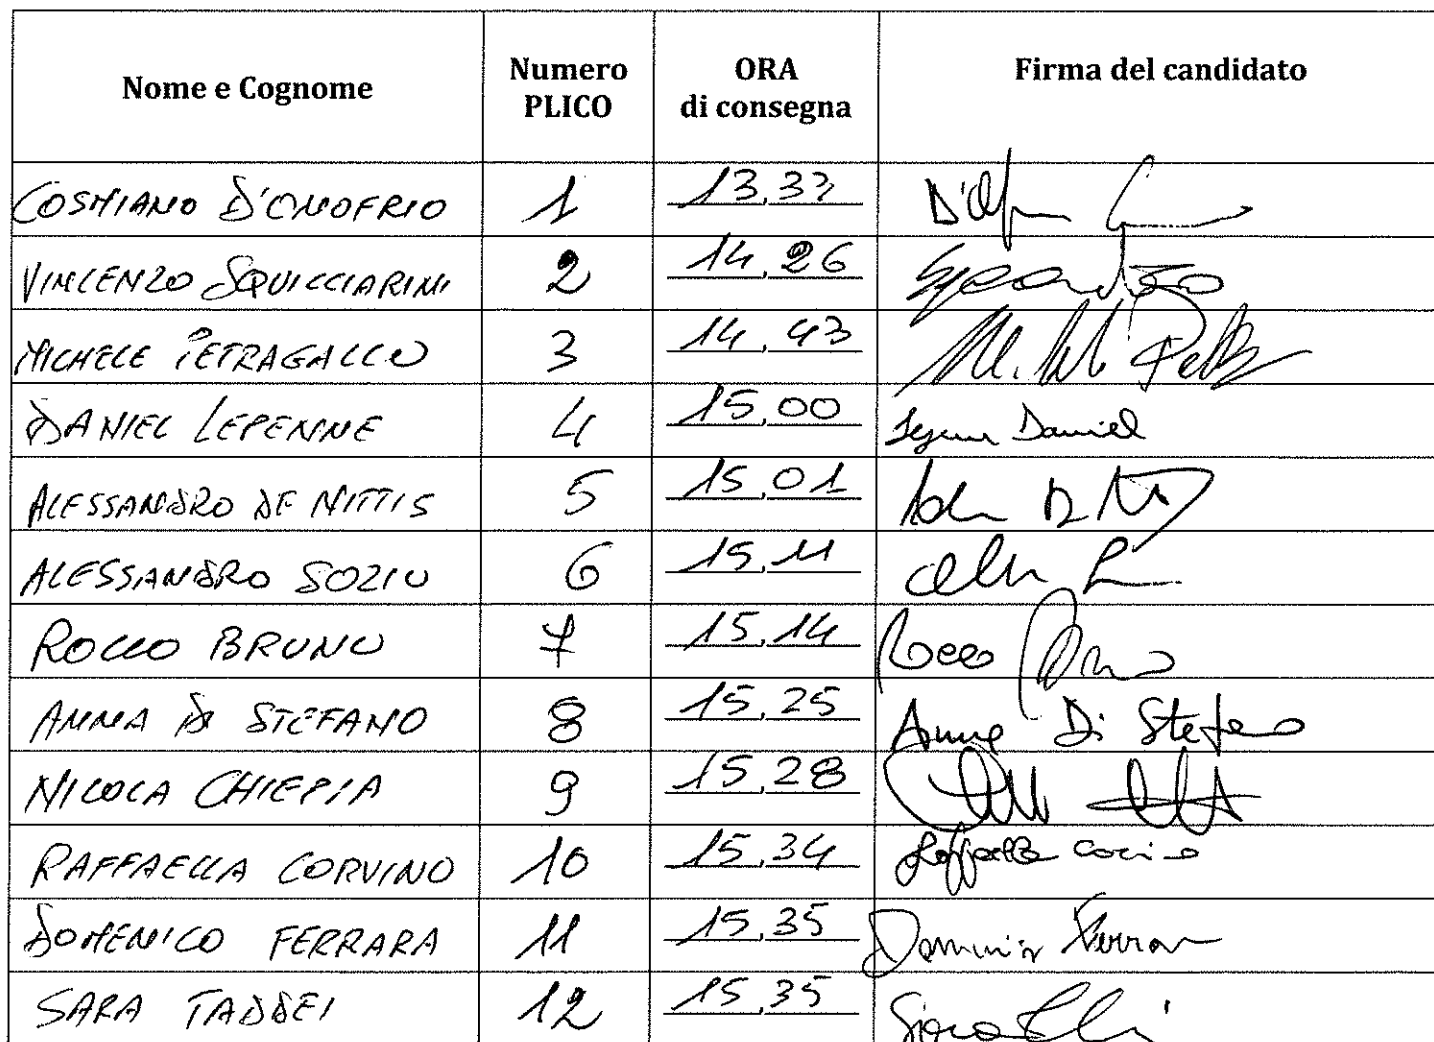 Nome e Cognome Numero PLICO ORA di consegna Firma del candidato
COSMIANO D'ONOFRIO 1 13,37
VINCENZO SQUICCIARINI 2 14,26
MICHELE PETRAGALLO 3 14,43
DANIEL LEPENNE 4 15,00 Daniel
ALESSANDRO DE NITTIS 5 15,01
ALESSANDRO SOZIO 6 15,11
ROCCO BRUNO 7 15,14 Rocco Bruno
ANNA DI STEFANO 8 15,25 Anna Di Stefano
NICOLA CHIEPPA 9 15,28
RAFFAELLA CORVINO 10 15,34 Raffaella Corvino
DOMENICO FERRARA 11 15,35 Domenico Ferrara
SARA TADDEI 12 15,35